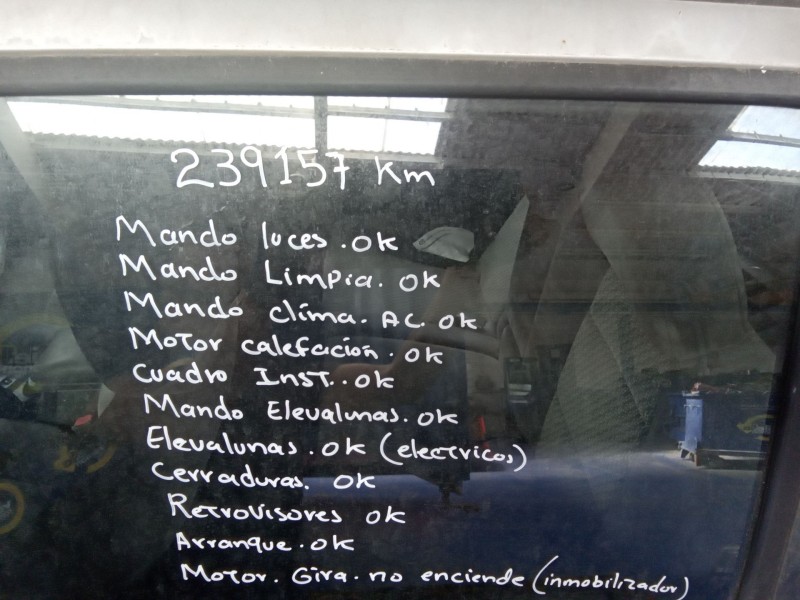 239157 Km
Mando luces. OK
Mando Limpia. OK
Mando clima. AC. OK
Motor calefación. OK
Cuadro Inst.. OK
Mando Elevalunas. OK
Elevalunas. OK (electricos)
Cerraduras. OK
Retrovisores OK
Arranque. OK
Motor. Gira. no enciende (inmobilizador)